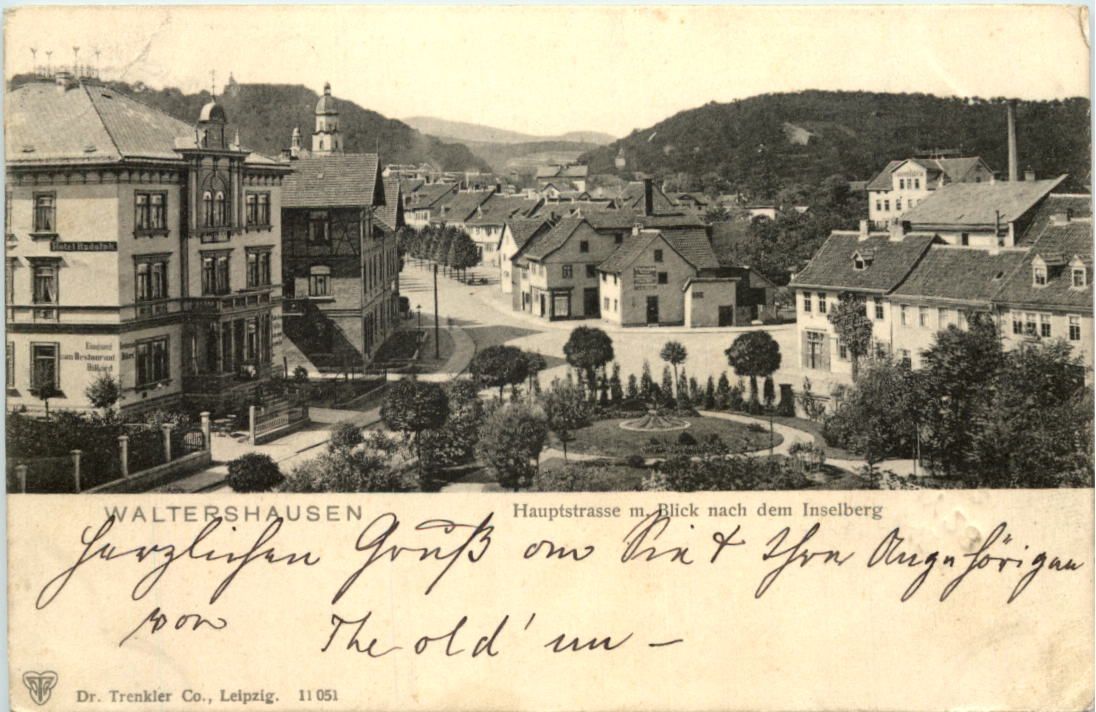 Hotel Rudolph
Eingang
zum Restaurant
Billard
WALTERSHAUSEN
Hauptstrasse m. Blick nach dem Inselberg
herzlichen Gruß an Sie & Ihre Angehörigen
von The old' un –
Dr. Trenkler Co., Leipzig. 11051